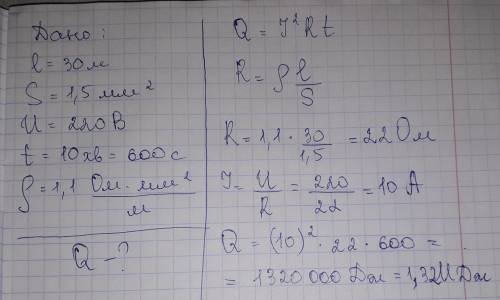 Дано:
l = 30м
S = 1,5 мм²
U = 220 В
t = 10хв = 600 с
ρ = 1,1 Ом·мм²/м
Q - ?
Q = I²Rt
R = ρ l/S
R = 1,1 · 30/1,5 = 22 Ом
I = U/R = 220/22 = 10 А
Q = (10)² · 22 · 600 =
= 1320 000 Дж = 1,32МДж